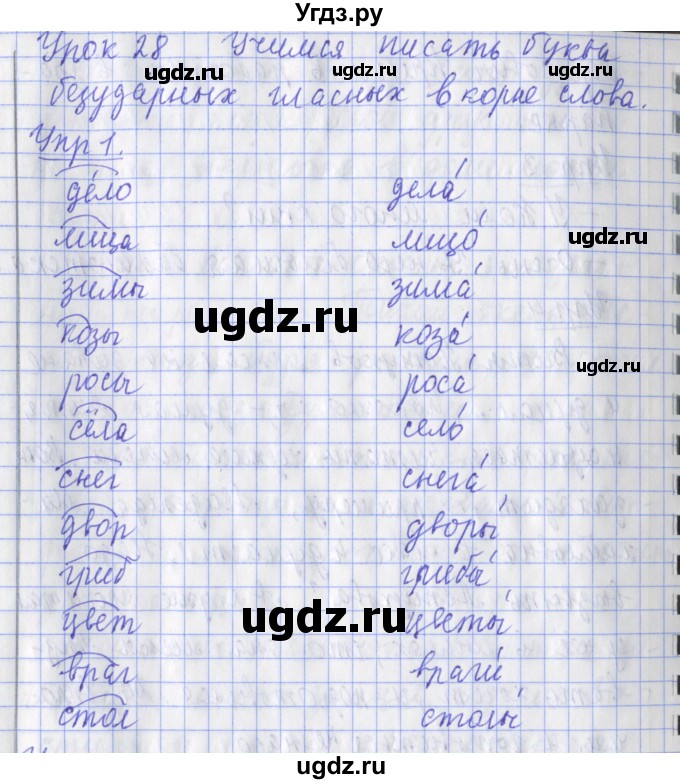 Угдз.ру
Урок 28 Учимся писать буквы
безударных гласных в корне слова.
Упр 1.
де́ло дела́
лица лицо́
зимы зима́
козы коза́
росы роса́
сёла село́
снег снега́
двор дворы́
гриб грибы́
цвет цветы́
враг враги́
стол столы́
ugdz.ru
ugdz.ru
ugdz.ru
ugdz.ru
ugdz.ru
ugdz.ru
ugdz.ru
ugdz.ru
ugdz.ru
ugdz.ru